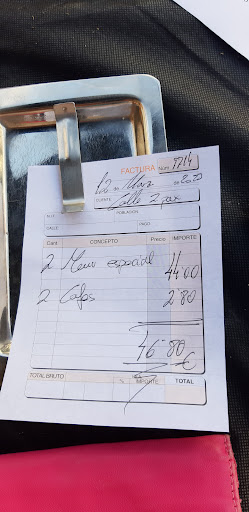 FACTURA Núm. 7714
12 de Marz de 2020
CLIENTE Calle 2 pax
N.I.F. POBLACIÓN
CALLE PAGO
Cant. CONCEPTO Precio IMPORTE
2 Menu especial 44'00
2 Cafes 2'80
46'80
€
TOTAL BRUTO % IMPORTE TOTAL